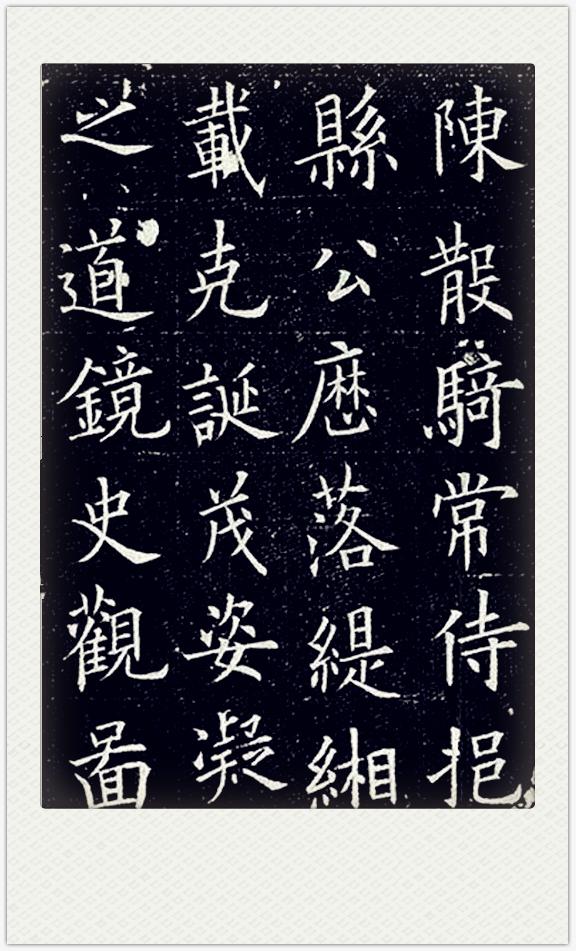 陳散騎常侍挹
縣公歷落緹緗
載克誕茂姿凝
之道鏡史觀圖